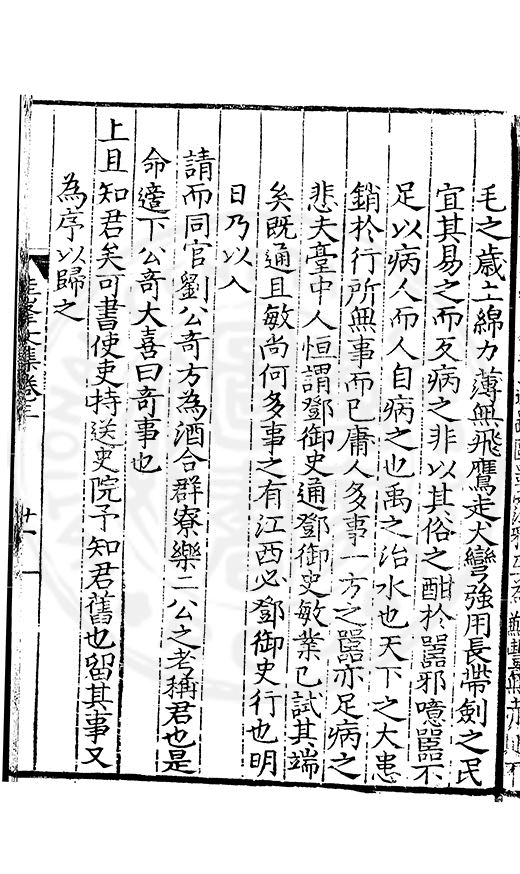 毛之歲土綿力薄無飛鷹走犬彎強用長帶劍之民
宜其易之而歹病之非以其俗之酣於嚚邪噫嚚不
足以病人而人自病之也禹之治水也天下之大患
銷於行所無事而已庸人多事一方之嚚亦足病之
悲夫臺中人恒謂鄧御史通鄧御史敏業已試其端
矣既通且敏尚何多事之有江西必鄧御史行也明
日乃以入
請而同官劉公竒方為酒合群寮樂二公之老稱君也是
命遆下公竒大喜曰竒事也
上且知君矣可書使吏特送史院予知君舊也留其事又
為序以歸之
文集卷三